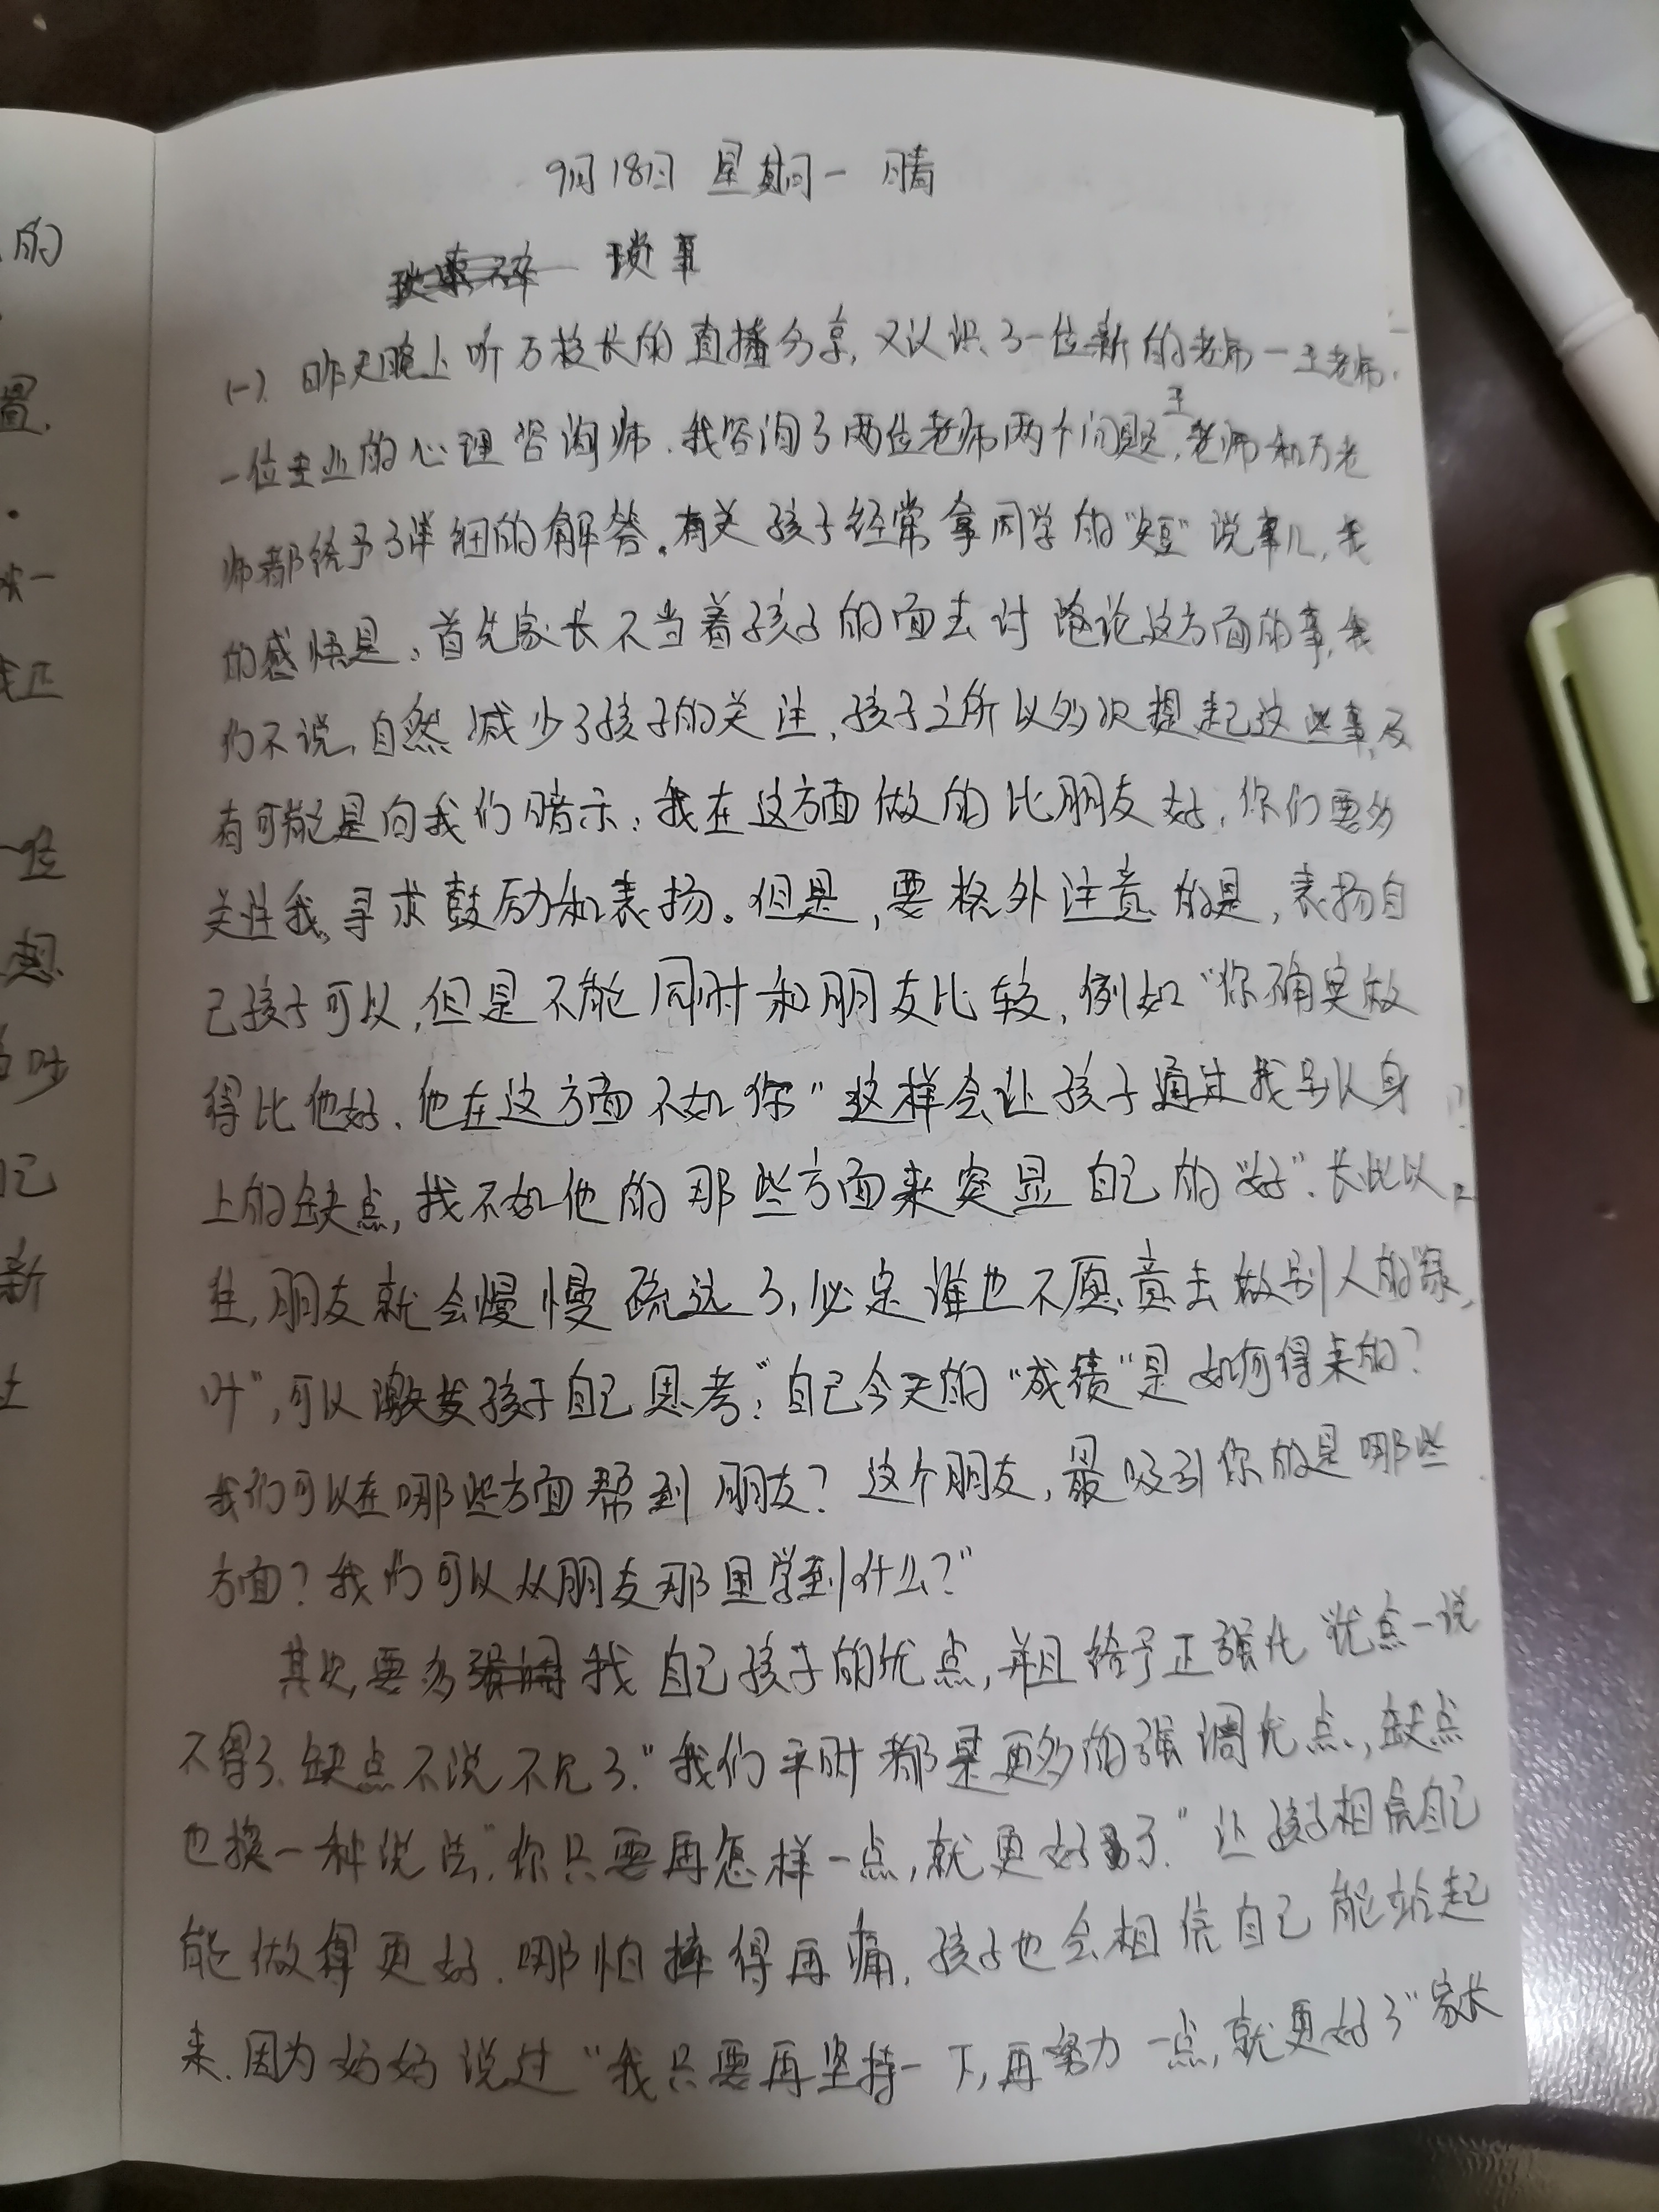 9月18日 星期一 晴
琐事
(一) 昨天晚上听万校长的直播分享,又认识了一位新的老师—王老师.
一位专业的心理咨询师.我咨询了两位老师两个问题,王老师和万老
师都给予了详细的解答。有关孩子经常拿同学的"短"说事儿,我
的感悟是:首先家长不当着孩子的面去讨论这方面的事,我
们不说,自然减少了孩子的关注,孩子之所以多次提起这些事,
有可能是向我们暗示:我在这方面做的比朋友好,你们要多
关注我,寻求鼓励和表扬。但是,要格外注意的是,表扬自
己孩子可以,但是不能同时和朋友比较,例如"你确实做
得比他好.他在这方面不如你"这样会让孩子通过找别人身
上的缺点,找不如他的那些方面来突显自己的"好".长此以
往,朋友就会慢慢疏远了,必定谁也不愿意去做别人的"绿
叶",可以激发孩子自己思考:"自己今天的"成绩"是如何得来的?
我们可以在哪些方面帮到朋友?这个朋友,最吸引你的是哪些
方面?我们可以从朋友那里学到什么?"
其次,要多找自己孩子的优点,并且给予正强化"优点一说
不得了.缺点不说不见了."我们平时都是更多的强调优点,缺点
也换一种说法"你只要再怎样一点,就更好了."让孩子相信自己
能做得更好.哪怕摔得再痛,孩子也会相信自己能站起
来.因为妈妈说过"我只要再坚持一下,再努力一点,就更好了"家长
的
置.
一位
想
吵
己
新